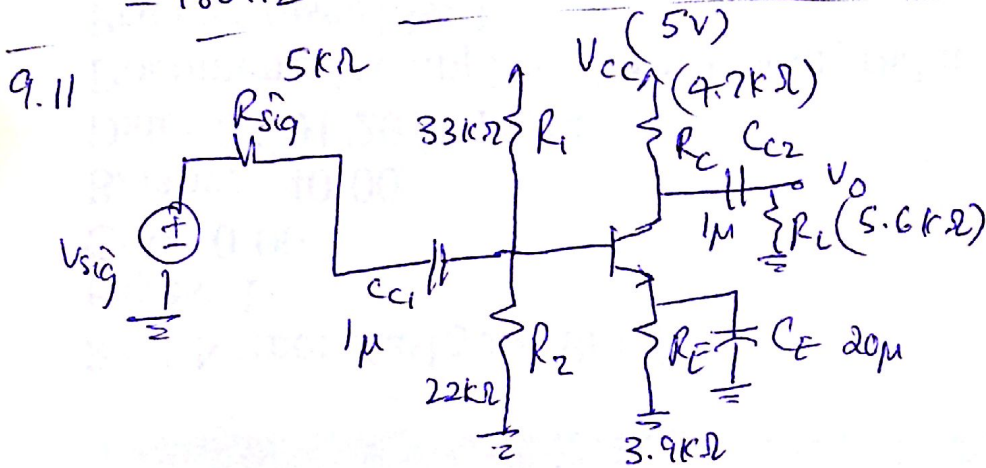 = 100KΩ
9.11
5KΩ
Rsig
Vsig
CC1
1μ
33KΩ
R1
R2
22KΩ
VCC (5V)
(4.7KΩ)
RC
CC2
1μ
Vo
RL (5.6KΩ)
RE
CE 20μ
3.9KΩ